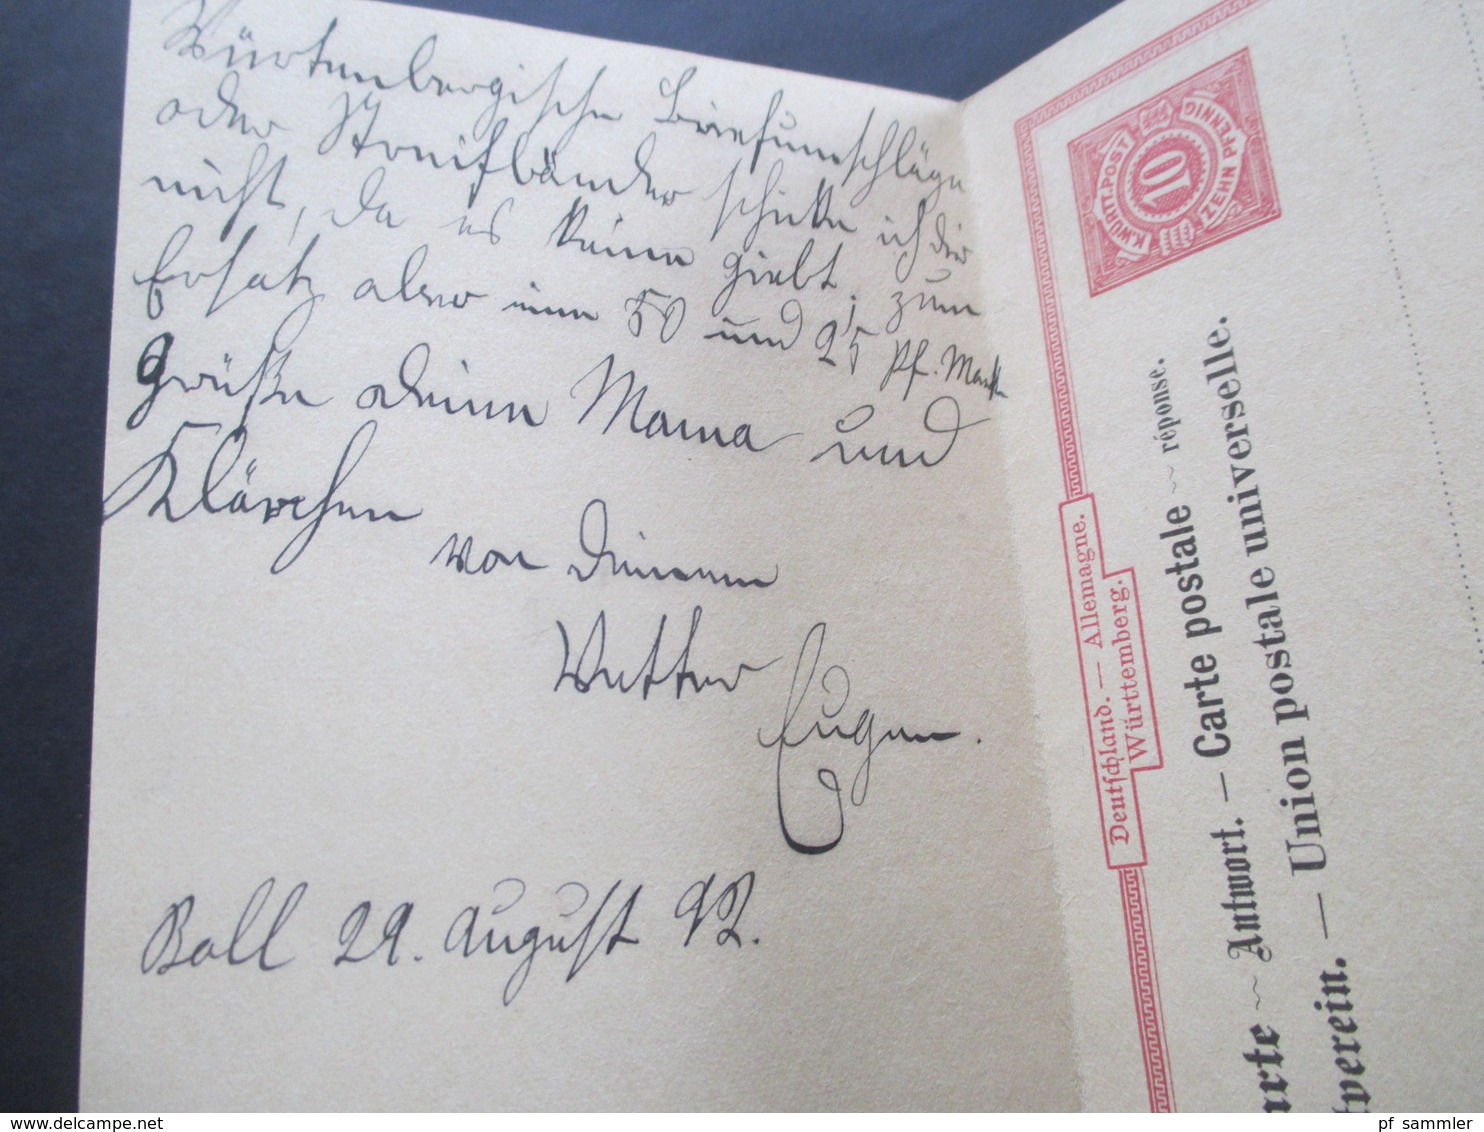 Würtenbergische Briefumschläge
oder Streifbänder schicke ich dir
nicht, da es keine giebt; zum
Ersatz aber eine 50 und 25 Pf. Marke
Grüße Deine Mama und
Klärchen
von Deinem
Vetter
Eugen.
Boll 29. August 92.
K. WÜRTT. POST
10
ZEHN PFENNIG
Deutschland. — Allemagne.
Württemberg.
arte ~ Antwort. — Carte postale ~ réponse.
tverein. — Union postale universelle.
pf_sammler